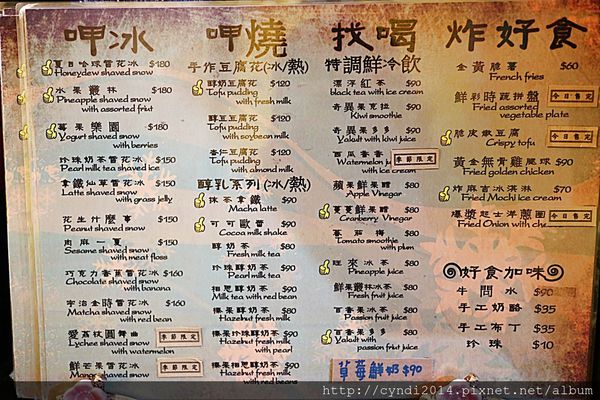 呷冰
夏日哈球雪花冰 $180
Honeydew shaved snow
水果叢林 $180
Pineapple shaved snow
with assorted fruit
莓果樂園 $180
Yogurt shaved snow
with berries
珍珠奶茶雪花冰 $150
Pearl milk tea shaved ice
拿鐵仙草雪花冰 $150
Latte shaved snow
with grass jelly
花生什麼事 $150
Peanut shaved snow
肉麻一夏 $150
Sesame shaved snow
with meat floss
巧克力香蕉雪花冰 $160
Chocolate shaved snow
with banana
宇治金時雪花冰 $160
Matcha shaved snow
with red bean
愛荔枝圓舞曲 季節限定
Lychee shaved snow
with watermelon
鮮芒果雪花冰 季節限定
Mango shaved snow
呷燒
手作豆腐花(冰/熱)
醇奶豆腐花 $120
Tofu pudding
with fresh milk
醇豆豆腐花 $120
Tofu pudding
with soybean milk
杏仁豆腐花 $120
Tofu pudding
with almond milk
醇乳系列(冰/熱)
抹茶拿鐵 $90
Macha latte
可可歐蕾 $90
Cocoa milk shake
醇奶茶 $80
Fresh milk tea
珍珠醇奶茶 $90
Pearl milk tea
相思醇奶茶 $90
Milk tea with red bean
榛果醇奶茶 $80
Hazelnut fresh milk
榛果珍珠醇奶茶 $90
Hazelnut fresh milk
with pearl
榛果相思醇奶茶 $90
Hazelnut fresh milk
with red beans
找喝
特調鮮冷飲
漂浮紅茶 $80
black tea with ice cream
奇異果克拉 $80
Kiwi smoothie
奇異果多多 $80
Yakult with kiwi juice
西瓜香香 季節限定
Watermelon juice
with ice cream
蘋果鮮果醋 $80
Apple Vinegar
蔓蔓鮮果醋 $80
Cranberry Vinegar
蕃茄梅 $80
Tomato smoothie
with plum
旺來冰茶 $80
Pineapple juice
鮮果叢林冰茶 $80
Fresh fruit juice
百香果冰茶 $80
Passion fruit juice
百香果多多 $80
Yakult with
passion fruit juice
草莓鮮奶 $90
炸好食
金黃脆薯 $60
French fries
鮮彩時蔬拼盤 今日售定
Fried assorted
vegetable plate
脆皮嫩豆腐 今日售定
Crispy tofu
黃金無骨雞腿球 $90
Fried golden chicken
炸麻吉冰淇淋 $70
Fried Mochi Ice cream
爆漿起士洋蔥圈 今日售定
Fried Onion with che
好食加味
牛問水 $90
手工奶酪 $35
手工布丁 $35
珍珠 $10
http://cyndi2014.pixnet.net/album